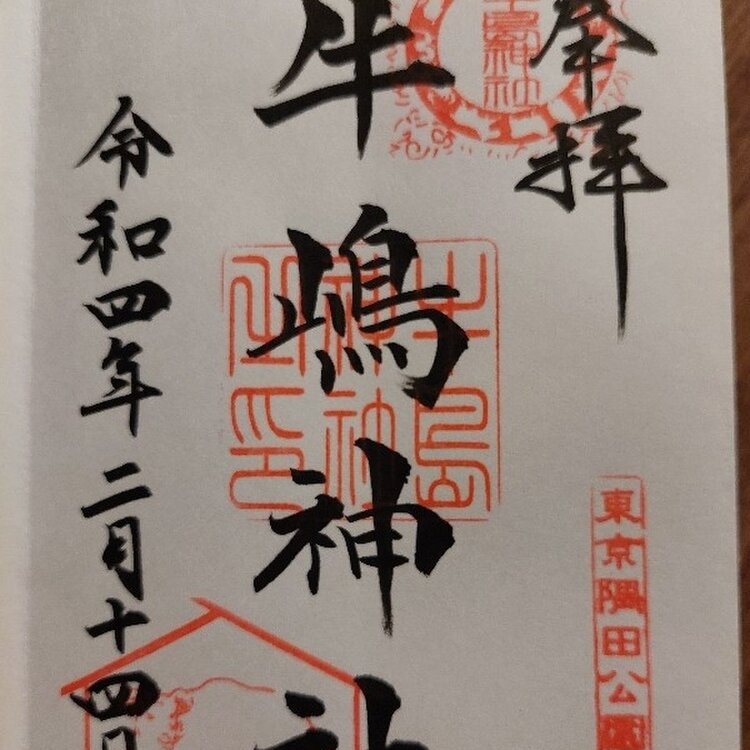 奉拝
東京隅田公園
牛嶋神社
牛島神社之印
令和四年二月十四日